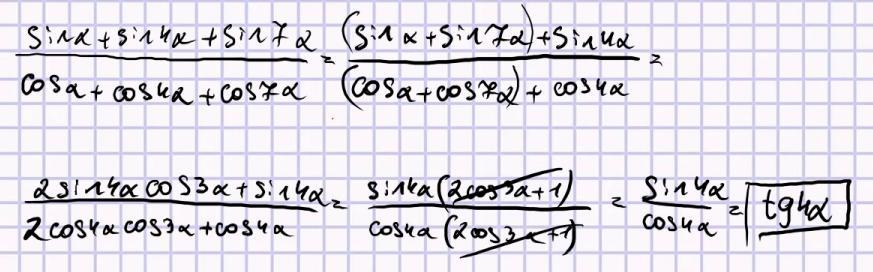 (sinα + sin4α + sin7α)/(cosα + cos4α + cos7α) = ((sinα + sin7α) + sin4α)/((cosα + cos7α) + cos4α) =
(2sin4α cos3α + sin4α)/(2cos4α cos3α + cos4α) = (sin4α(2cos3α + 1))/(cos4α(2cos3α + 1)) = sin4α/cos4α = tg4α